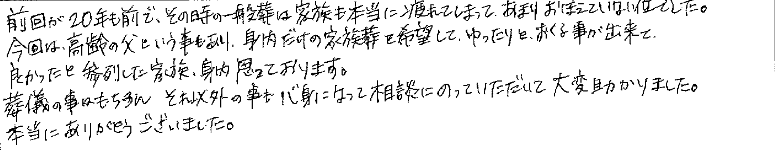 前回が20年も前で、その時の一般葬は家族も本当に疲れてしまって、あまりおぼえていない位でした。
今回は、高齢の父という事もあり、身内だけの家族葬を希望して、ゆったりと、おくる事が出来て、
良かったと参列した家族、身内思っております。
葬儀の事はもちろん それ以外の事も 心身になって相談にのっていただいて 大変助かりました。
本当にありがとうございました。